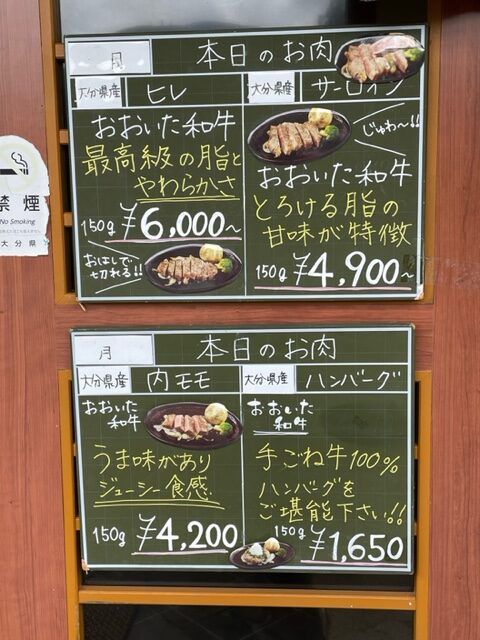 月
本日のお肉
大分県産
ヒレ
おおいた和牛
最高級の脂と
やわらかさ
150g ¥6,000~
おはしで
切れる!!
大分県産
サーロイン
じゅわ~!!
おおいた和牛
とろける脂の
甘味が特徴
150g ¥4,900~
禁煙
No Smoking
大分県
月
本日のお肉
大分県産
内モモ
おおいた
和牛
うま味があり
ジューシー食感
150g ¥4,200
大分県産
ハンバーグ
おおいた
和牛
手ごね牛100%
ハンバーグを
ご堪能下さい!!
150g ¥1,650